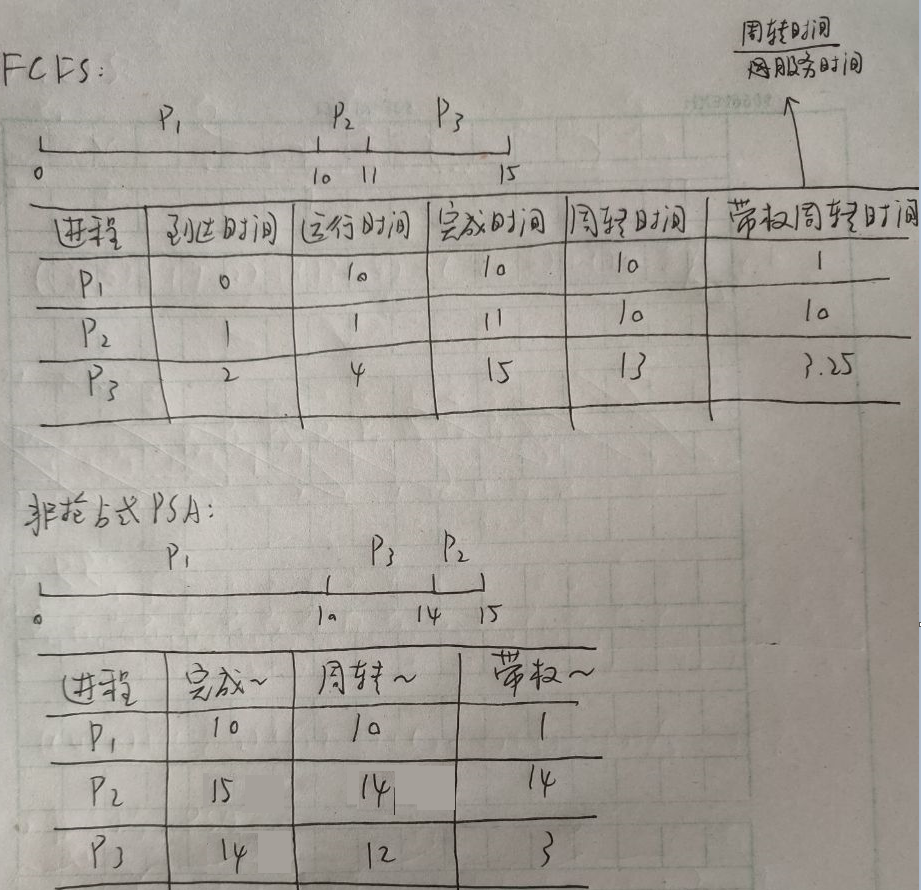 周转时间
服务时间
FCFS:
P1 P2 P3
0 10 11 15
进程 到达时间 运行时间 完成时间 周转时间 带权周转时间
P1 0 10 10 10 1
P2 1 1 11 10 10
P3 2 4 15 13 3.25
非抢占式PSA:
P1 P3 P2
0 10 14 15
进程 完成~ 周转~ 带权~
P1 10 10 1
P2 15 14 14
P3 14 12 3